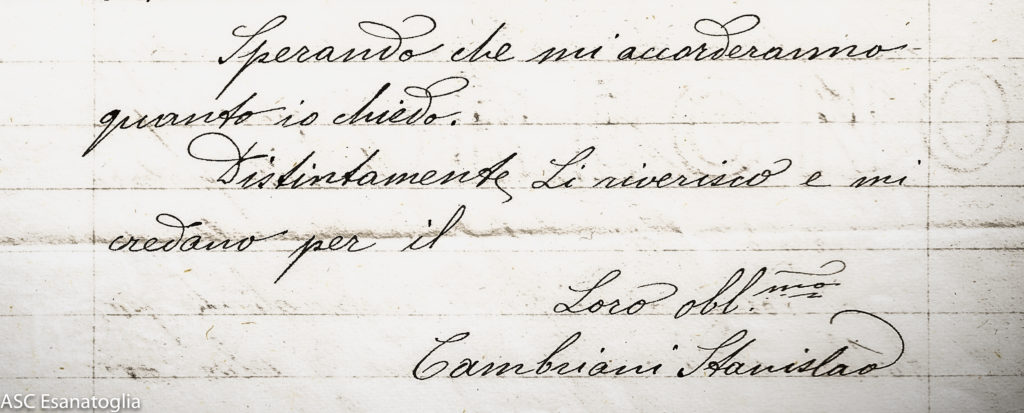 Sperando che mi accorderanno
quanto io chiedo.
Distintamente Li riverisco e mi
credano per il
Loro obl.mo
Cambriani Stanislao
ASC Esanatoglia